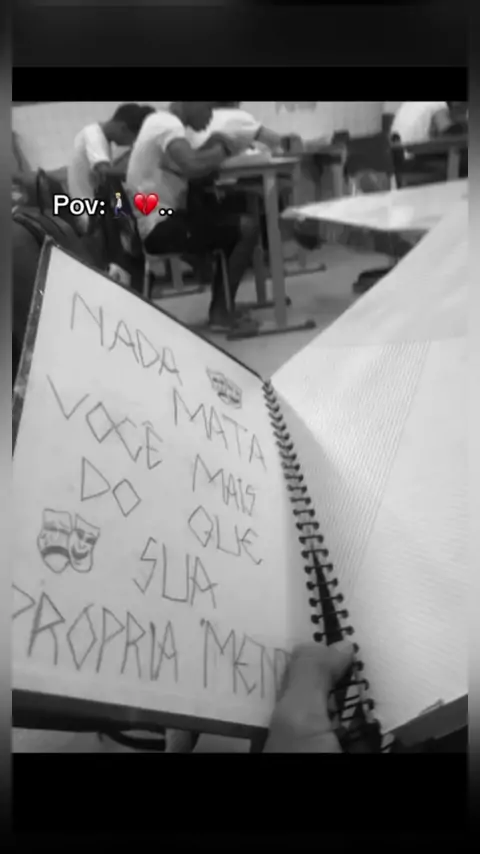 Pov:🚶🏻‍♂️💔..
NADA
MATA
VOCÊ MAIS
DO QUE
SUA
PRÓPRIA "MEN